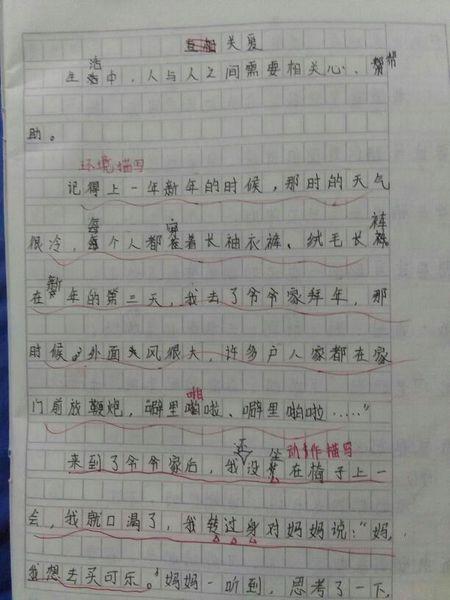 关爱
活
生活中，人与人之间需要相关心、帮
助。
环境描写
记得上一年新年的时候，那时的天气
每 穿 裤
很冷，每个人都在着长袖衣裤、绒毛长裤
新
在年的第三天，我去了爷爷家拜年，那
时候，外面风很大，许多户人家都在家
啪
门前放鞭炮，噼里啪啦、噼里啪啦……"
还 坐 动作描写
来到了爷爷家后，我没在椅子上一
会，我就口渴了，我转过身对妈妈说："妈，
我想去买可乐。"妈妈一听到，思考了一下，